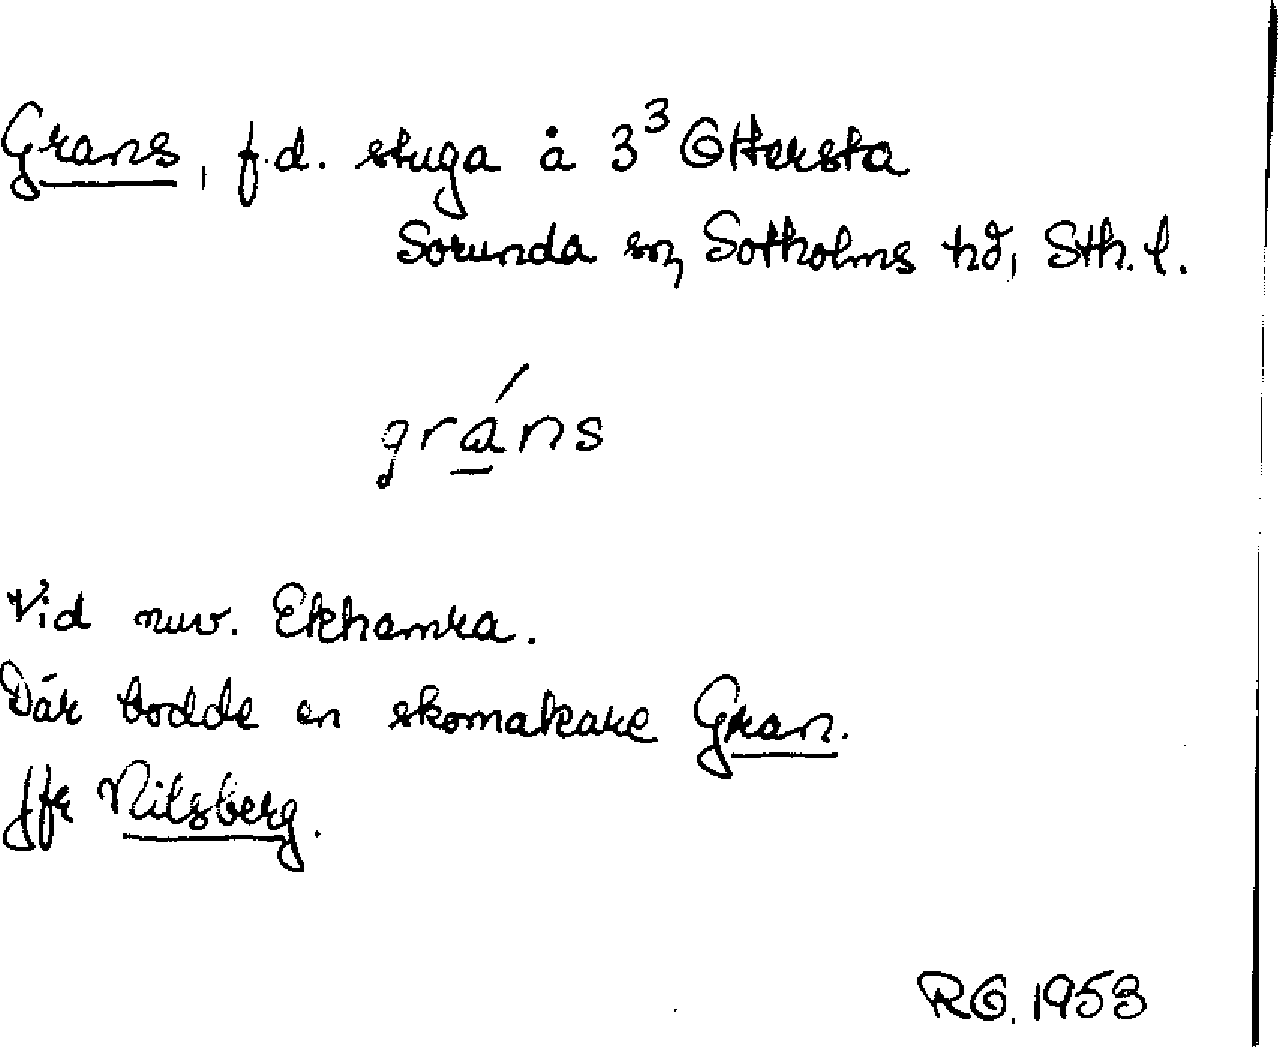 Grans, f.d. stuga å 3³ Ottersta
Sorunda sn, Sotholms hd, Sth. l.
gráns
Vid nuv. Ekhamra.
Där bodde en skomakare Gran.
Jfr Nilsberg.
RO. 1953